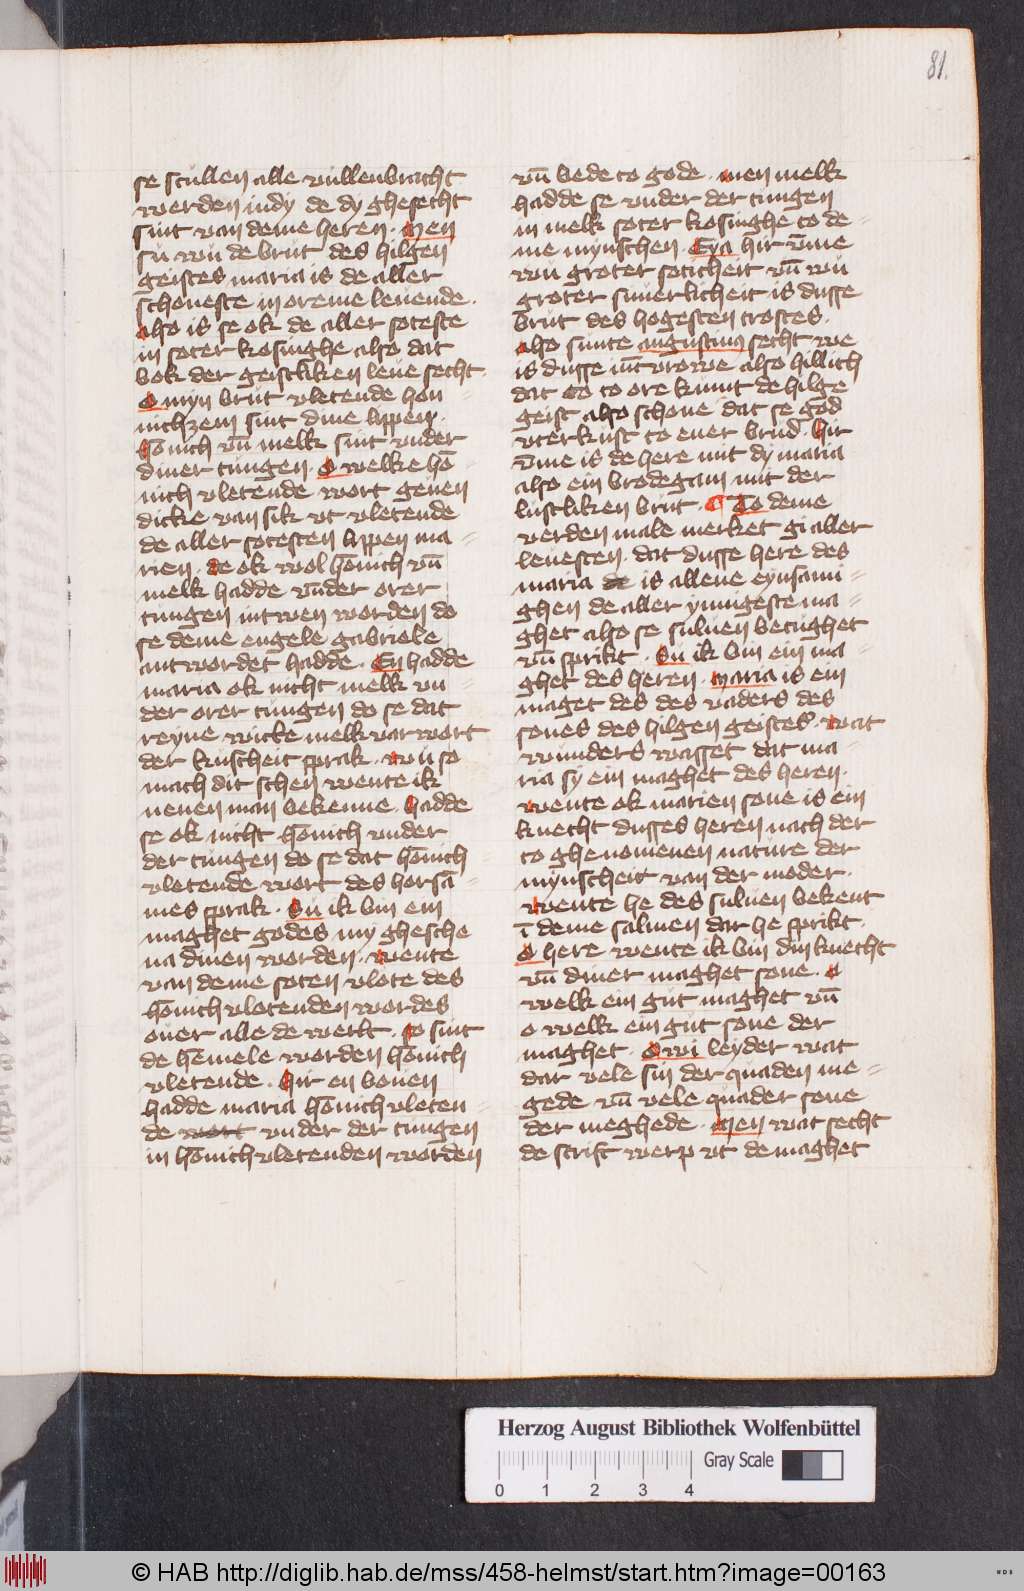 81.
se scullen alle vullenbracht
werden in dy de dy ghesecht
sint van deme heren. Men
su wu de brut des hilgen
geistes maria is de aller
schoneste in oreme leuende.
Also is se ok de aller soteste
in soter kosinghe also dat
bok der geistliken leue secht.
O myn brut vletende hon
nichzem sint dine lippen.
Honich vn̄ melk sint vnder
diner tungen. O welke hō
nich vletende wort geuen
dicke van sik vt vletende
de aller sotesten lippen ma
rien. de ok wol hōnich vn̄
melk hadde vnder orer
tungen in twen worden do
se deme engele gabriele
antwordet hadde. En hadde
maria ok nicht melk vn
der orer tungen do se dat
reyne wicke melkvar wort
der kuscheit sprak. wu so
mach dit schen wente ik
nenen man bekenne. Hadde
se ok nicht honich vnder
der tungen do se dat hōnich
vletende wort des horsā
mes sprak. Su ik bin ein
maghet godes my ghesche
na dinen worden. wente
van deme soten vlote des
hōnich vletenden wordes
ouer alle de werlt. so sint
de hēmele worden hōnich
vletende. Hir en bouen
hadde maria hōnich vleten
de wort vnder der tungen
in hōnich vletenden worden
vn̄ bede to gode. men melk
hadde se vnder der tungen
in melk soter kosinghe to de
me mynschen. Eya hir v̄me
wu groter soticheit vn̄ wu
groter suuerlicheit is dusse
brut des hogesten trostes.
Also sunte augustinus secht we
is dusse iūcvrowe also hillich
dat to to ore kumt de hilge
geist also schone dat se god
vterkust to ener brud. Hir
v̄me is de here mit dy maria
also ein brodegam mit der
lustliken brut. To deme
verden male merket gi aller
leuesten. dat dusse here des
maria de is allene eynsami
ghen de aller ynnigeste ma
ghet also se suluen betughet
vn̄ sprikt. Su ik bin ein ma
ghet des heren. Maria is ein
maget des des vaders des
sones des hilgen geistes. wat
wunders wasset dat ma
ria sy ein maghet des heren.
wente ok marien sone is ein
knecht dusses heren nach der
to ghenomenen nature der
mynscheit van der moder.
wente he des suluen bekent
ī deme salmen dar he sprikt.
O here wente ik bin din knecht
vn̄ diner maghet sone. O
welk ein gut maghet vn̄
o welk ein gut sone der
maghet. Owi leyder wat
dar vele sin der quaden me
gede vn̄ vele quader sone
der meghede. Men wat secht
de scrift werp vt de maghet
Herzog August Bibliothek Wolfenbüttel
Gray Scale
0 1 2 3 4
© HAB http://diglib.hab.de/mss/458-helmst/start.htm?image=00163